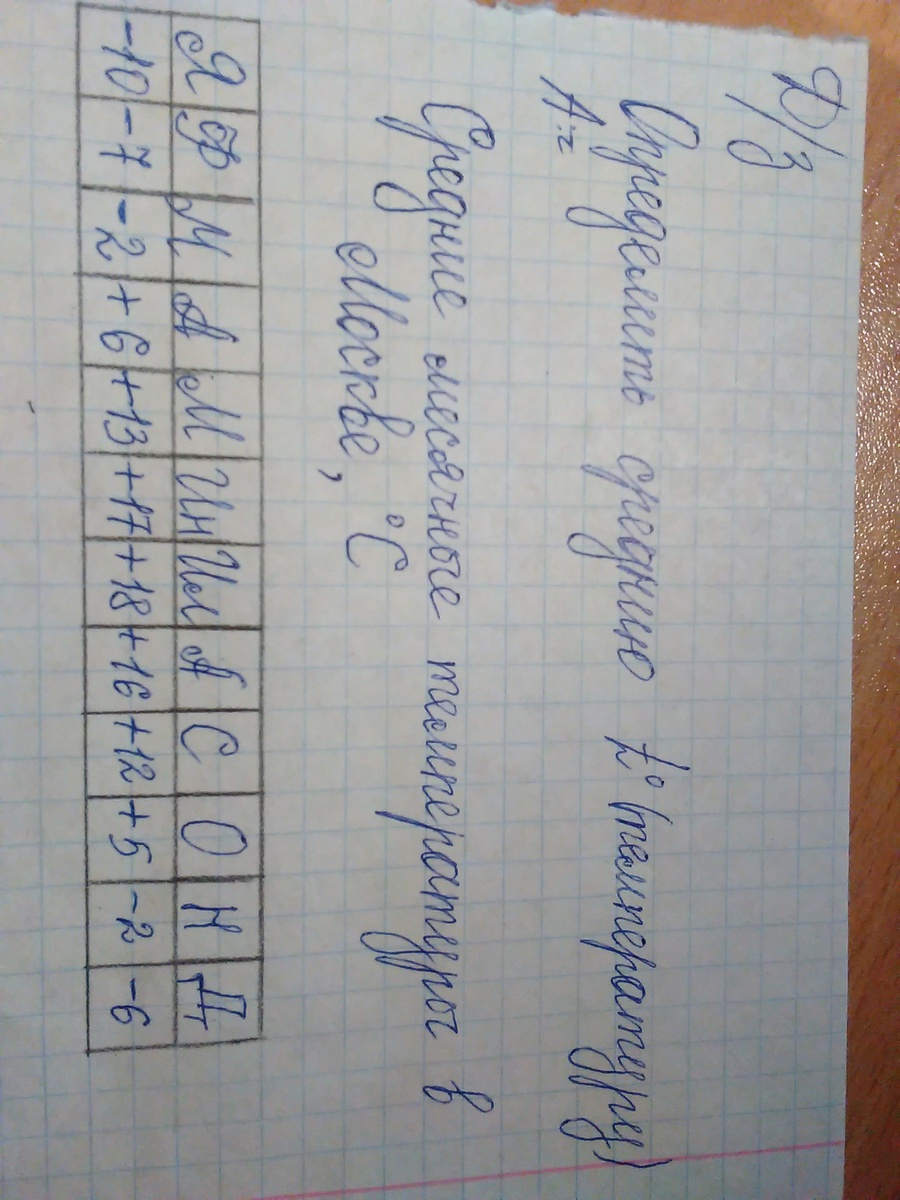 Д/з
Определить среднию t° (температуру)
А:=
Средние месячные температуры в
Москве, °С
Я Ф М А М Ин Ил А С О Н Д
-10 -7 -2 +6 +13 +17 +18 +16 +12 +5 -2 -6